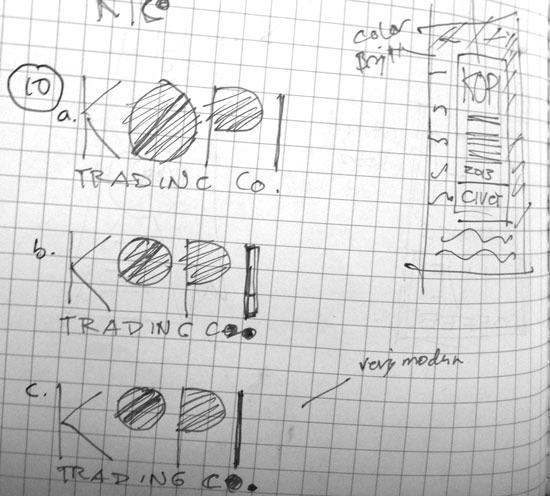 10
a. KOPI
TRADING Co.
b. KOPI
TRADING Co.
c. KOPI
TRADING Co.
very modern
Color
KOP
2013
CIVET